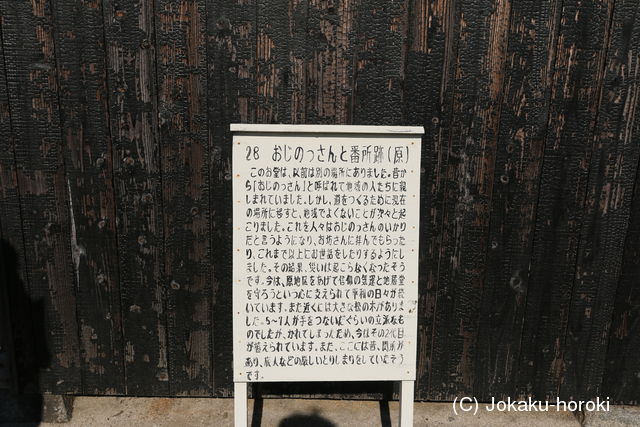 28 おじのっさんと番所跡(原)
このお堂は、以前は別の場所にありました。昔か
ら「おじのっさん」と呼ばれて地域の人たちに親し
まれていました。しかし、道をつくるために現在
の場所に移すと、地域でよくないことが次々と起
こりました。これを人々はおじのっさんのいかり
だと言うようになり、お坊さんに拝んでもらった
り、これまで以上にお世話をしたりするようにし
ました。その結果、災いは起こらなくなったそう
です。今は、原地区をあげて信仰の気運と地蔵堂
を守ろうという心に支えられて平和の日々が続
いています。また近くには大きな松の木がありま
した。5~7人が手をつないだぐらいの立派なも
のでしたが、かれてしまったため、今はその2代目
が植えられています。また、ここには昔、関所が
あり、旅人などの厳しいとりしまりをしていたそう
です。
(C) Jokaku-horoki